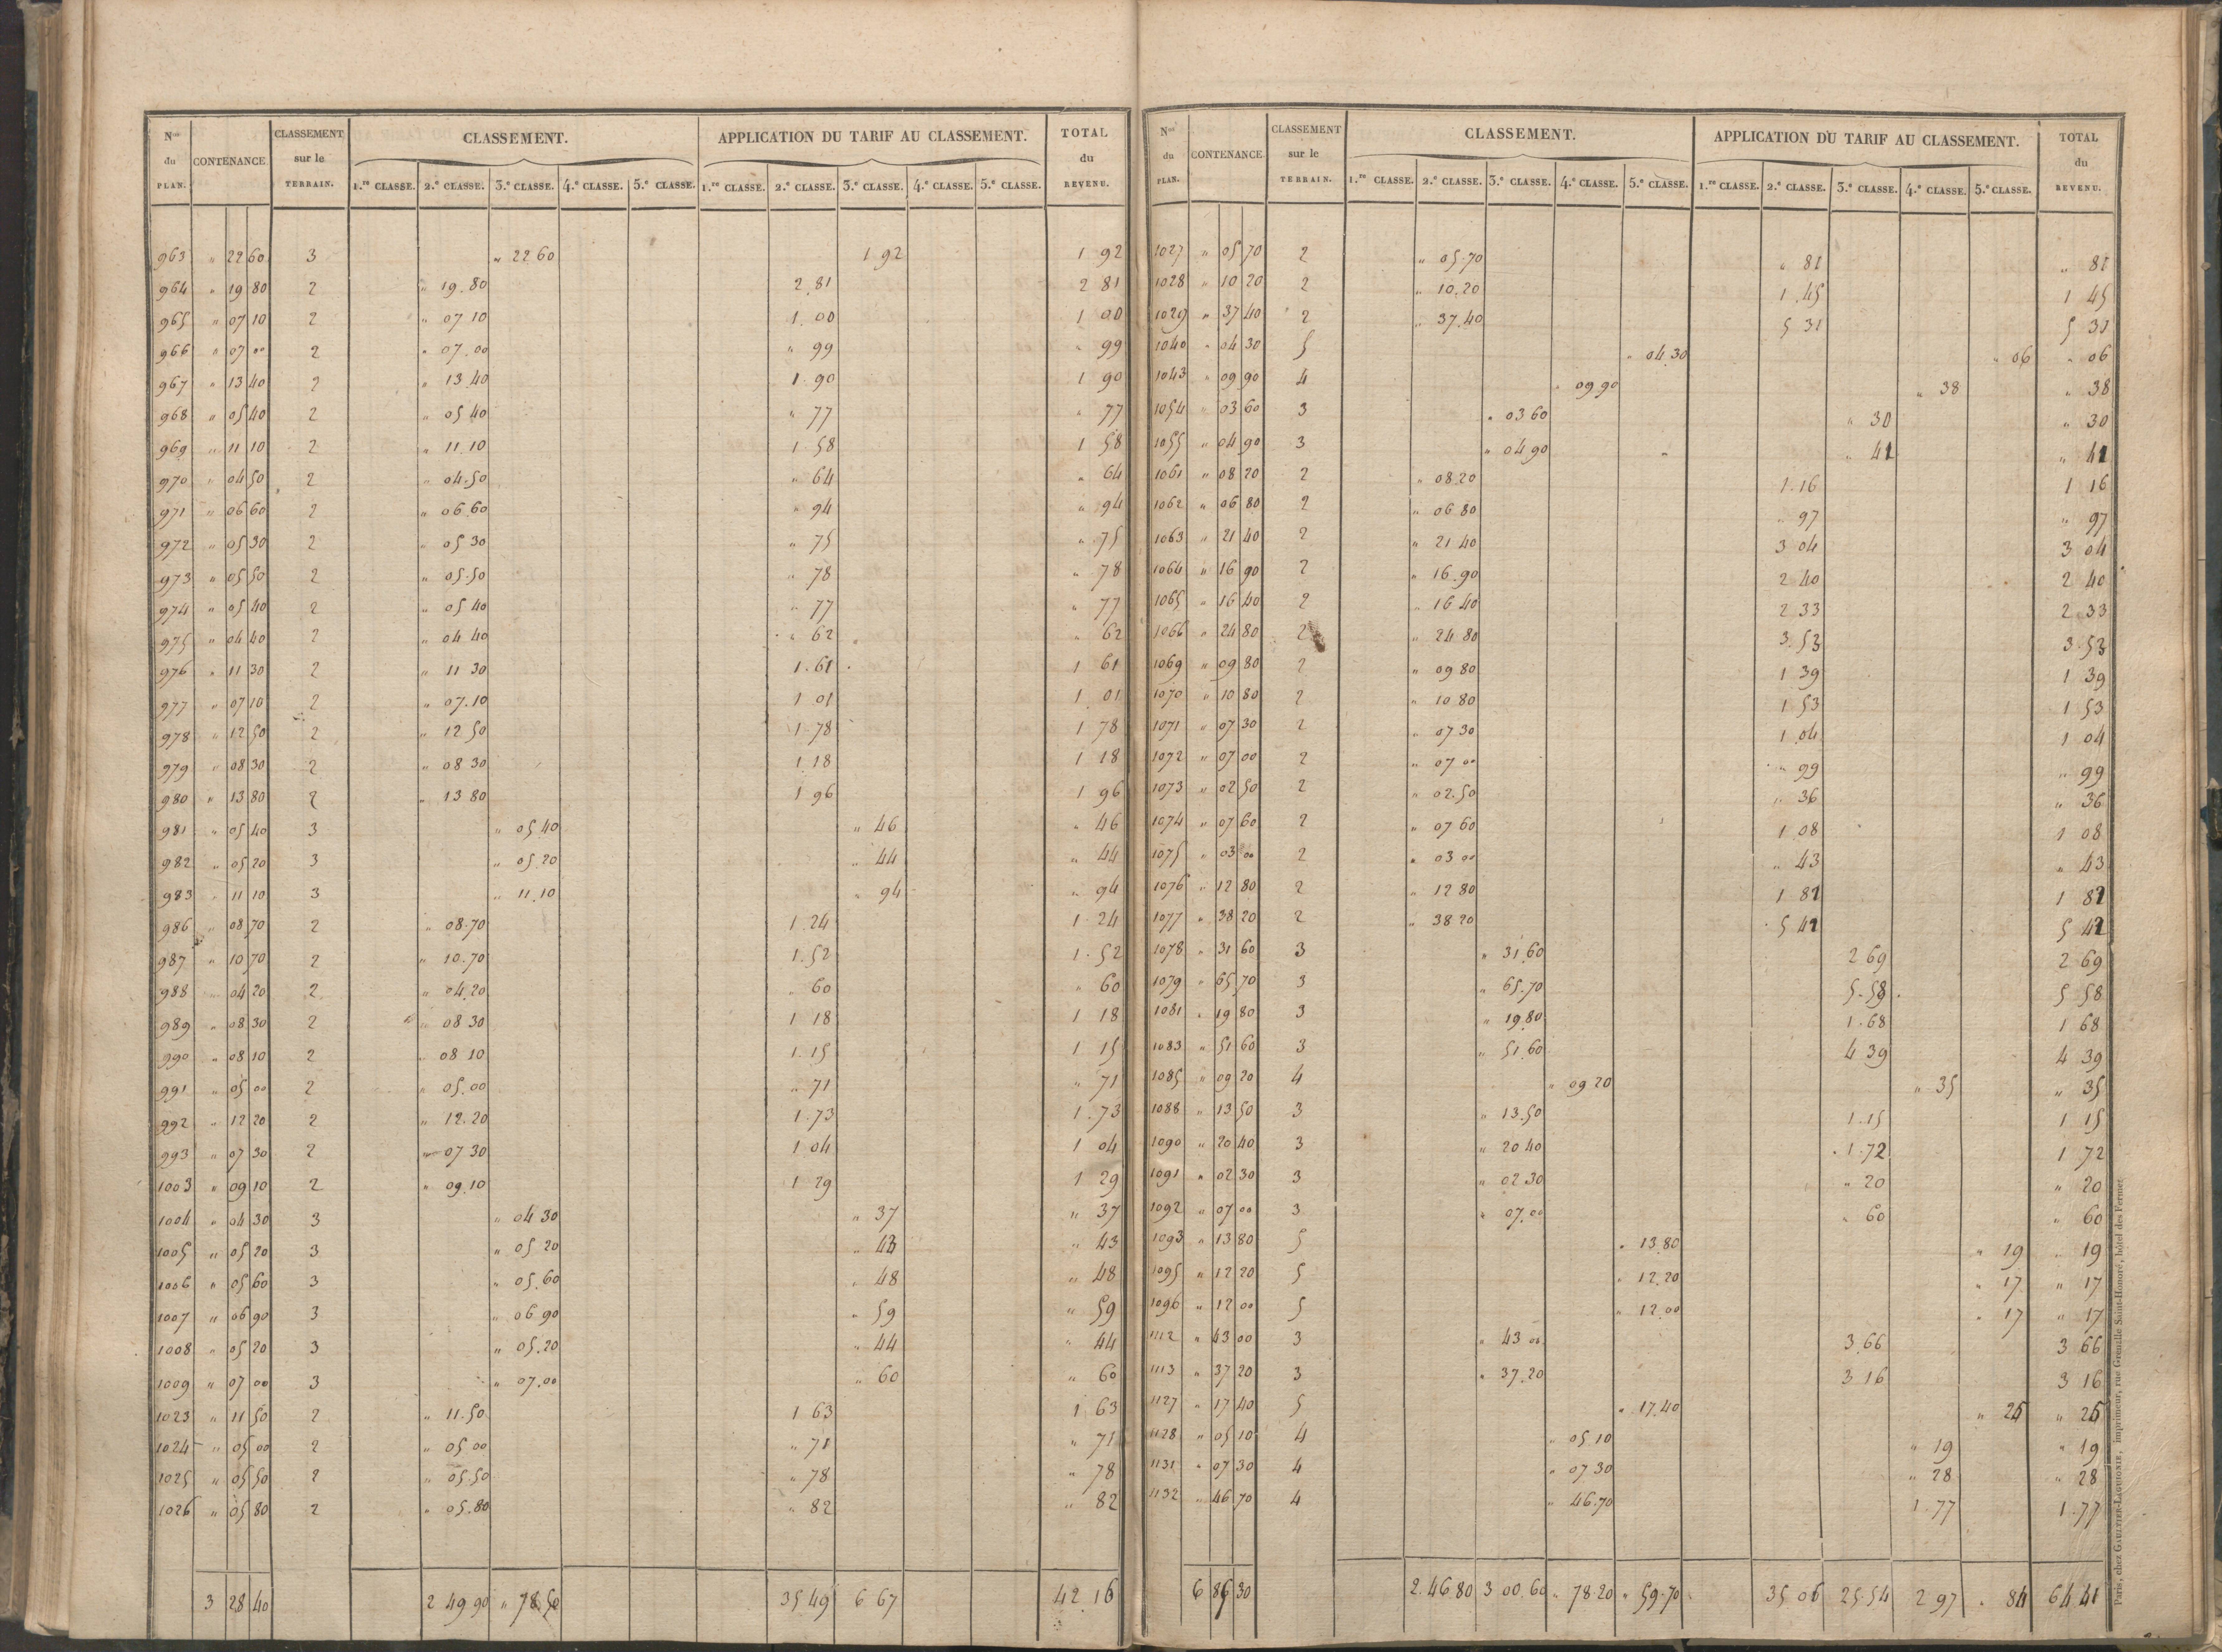 Nos du PLAN. CONTENANCE. CLASSEMENT sur le TERRAIN. CLASSEMENT. APPLICATION DU TARIF AU CLASSEMENT. TOTAL du REVENU.
1.re CLASSE. 2.e CLASSE. 3.e CLASSE. 4.e CLASSE. 5.e CLASSE. 1.re CLASSE. 2.e CLASSE. 3.e CLASSE. 4.e CLASSE. 5.e CLASSE.
963 " 22 60 3 " 22 60 1 92 1 92
964 " 19 80 2 " 19.80 2.81 2 81
965 " 07 10 2 " 07 10 1.00 1 00
966 " 07 00 2 " 07.00 " 99 " 99
967 " 13 40 2 " 13 40 1.90 1 90
968 " 05 40 2 " 05 40 " 77 " 77
969 " 11 10 2 " 11 10 1.58 1 58
970 " 04 50 2 " 04.50 " 64 " 64
971 " 06 60 2 " 06.60 " 94 " 94
972 " 05 30 2 " 05 30 " 75 " 75
973 " 05 50 2 " 05.50 " 78 " 78
974 " 05 40 2 " 05 40 " 77 " 77
975 " 04 40 2 " 04 40 " 62 " 62
976 " 11 30 2 " 11 30 1.61 1 61
977 " 07 10 2 " 07.10 1 01 1 01
978 " 12 50 2 " 12 50 1.78 1 78
979 " 08 30 2 " 08 30 1 18 1 18
980 " 13 80 2 " 13 80 1 96 1 96
981 " 05 40 3 " 05 40 " 46 " 46
982 " 05 20 3 " 05.20 " 44 " 44
983 " 11 10 3 " 11.10 " 94 " 94
986 " 08 70 2 " 08.70 1.24 1.24
987 " 10 70 2 " 10.70 1.52 1.52
988 " 04 20 2 " 04.20 " 60 " 60
989 " 08 30 2 " 08 30 1 18 1 18
990 " 08 10 2 " 08 10 1.15 1 15
991 " 05 00 2 " 05.00 " 71 " 71
992 " 12 20 2 " 12.20 1.73 1.73
993 " 07 30 2 " 07 30 1 04 1 04
1003 " 09 10 2 " 09.10 1 29 1 29
1004 " 04 30 3 " 04 30 " 37 " 37
1005 " 05 20 3 " 05 20 " 43 " 43
1006 " 05 60 3 " 05.60 " 48 " 48
1007 " 06 90 3 " 06 90 " 59 " 59
1008 " 05 20 3 " 05.20 " 44 " 44
1009 " 07 00 3 " 07.00 " 60 " 60
1023 " 11 50 2 " 11.50 1 63 1 63
1024 " 05 00 2 " 05 00 " 71 " 71
1025 " 05 50 2 " 05.50 " 78 " 78
1026 " 05 80 2 " 05.80 " 82 " 82
3 28 40 2 49 90 " 78.50 35 49 6 67 42.16
Nos du PLAN. CONTENANCE. CLASSEMENT sur le TERRAIN. CLASSEMENT. APPLICATION DU TARIF AU CLASSEMENT. TOTAL du REVENU.
1.re CLASSE. 2.e CLASSE. 3.e CLASSE. 4.e CLASSE. 5.e CLASSE. 1.re CLASSE. 2.e CLASSE. 3.e CLASSE. 4.e CLASSE. 5.e CLASSE.
1027 " 05 70 2 " 05.70 " 81 " 81
1028 " 10 20 2 " 10.20 1.45 1 45
1029 " 37 40 2 " 37.40 5 31 5 31
1040 " 04 30 5 " 04.30 " 06 " 06
1043 " 09 90 4 " 09 90 " 38 " 38
1054 " 03 60 3 " 03 60 " 30 " 30
1055 " 04 90 3 " 04 90 " 41 " 41
1061 " 08 20 2 " 08.20 1.16 1 16
1062 " 06 80 2 " 06 80 " 97 " 97
1063 " 21 40 2 " 21 40 3 04 3 04
1064 " 16 90 2 " 16.90 2 40 2 40
1065 " 16 40 2 " 16 40 2 33 2 33
1066 " 24 80 2 " 24 80 3.53 3.53
1069 " 09 80 2 " 09 80 1 39 1 39
1070 " 10 80 2 " 10 80 1 53 1 53
1071 " 07 30 2 " 07 30 1.04 1 04
1072 " 07 00 2 " 07 00 " 99 " 99
1073 " 02 50 2 " 02.50 " 36 " 36
1074 " 07 60 2 " 07 60 1 08 1 08
1075 " 03 00 2 " 03 00 " 43 " 43
1076 " 12 80 2 " 12 80 1 82 1 82
1077 " 38 20 2 " 38 20 5 42 5 42
1078 " 31 60 3 " 31.60 2 69 2 69
1079 " 65 70 3 " 65.70 5.58 5 58
1081 " 19 80 3 " 19.80 1.68 1 68
1083 " 51 60 3 " 51.60 4 39 4 39
1085 " 09 20 4 " 09 20 " 35 " 35
1088 " 13 50 3 " 13.50 1.15 1 15
1090 " 20 40 3 " 20 40 1.72 1 72
1091 " 02 30 3 " 02 30 " 20 " 20
1092 " 07 00 3 " 07.00 " 60 " 60
1093 " 13 80 5 " 13.80 " 19 " 19
1095 " 12 20 5 " 12.20 " 17 " 17
1096 " 12 00 5 " 12.00 " 17 " 17
1112 " 43 00 3 " 43 00 3.66 3 66
1113 " 37 20 3 " 37.20 3 16 3 16
1127 " 17 40 5 " 17.40 " 25 " 25
1128 " 05 10 4 " 05 10 " 19 " 19
1131 " 07 30 4 " 07 30 " 28 " 28
1132 " 46 70 4 " 46.70 1.77 1.77
6 30 2.46 80 3 00.60 " 78.20 " 59.70 35 06 25.54 2 97 " 84 64 41
Paris, chez GAULTIER-LAGUIONIE, imprimeur, rue Grenelle Saint-Honoré, hôtel des Fermes